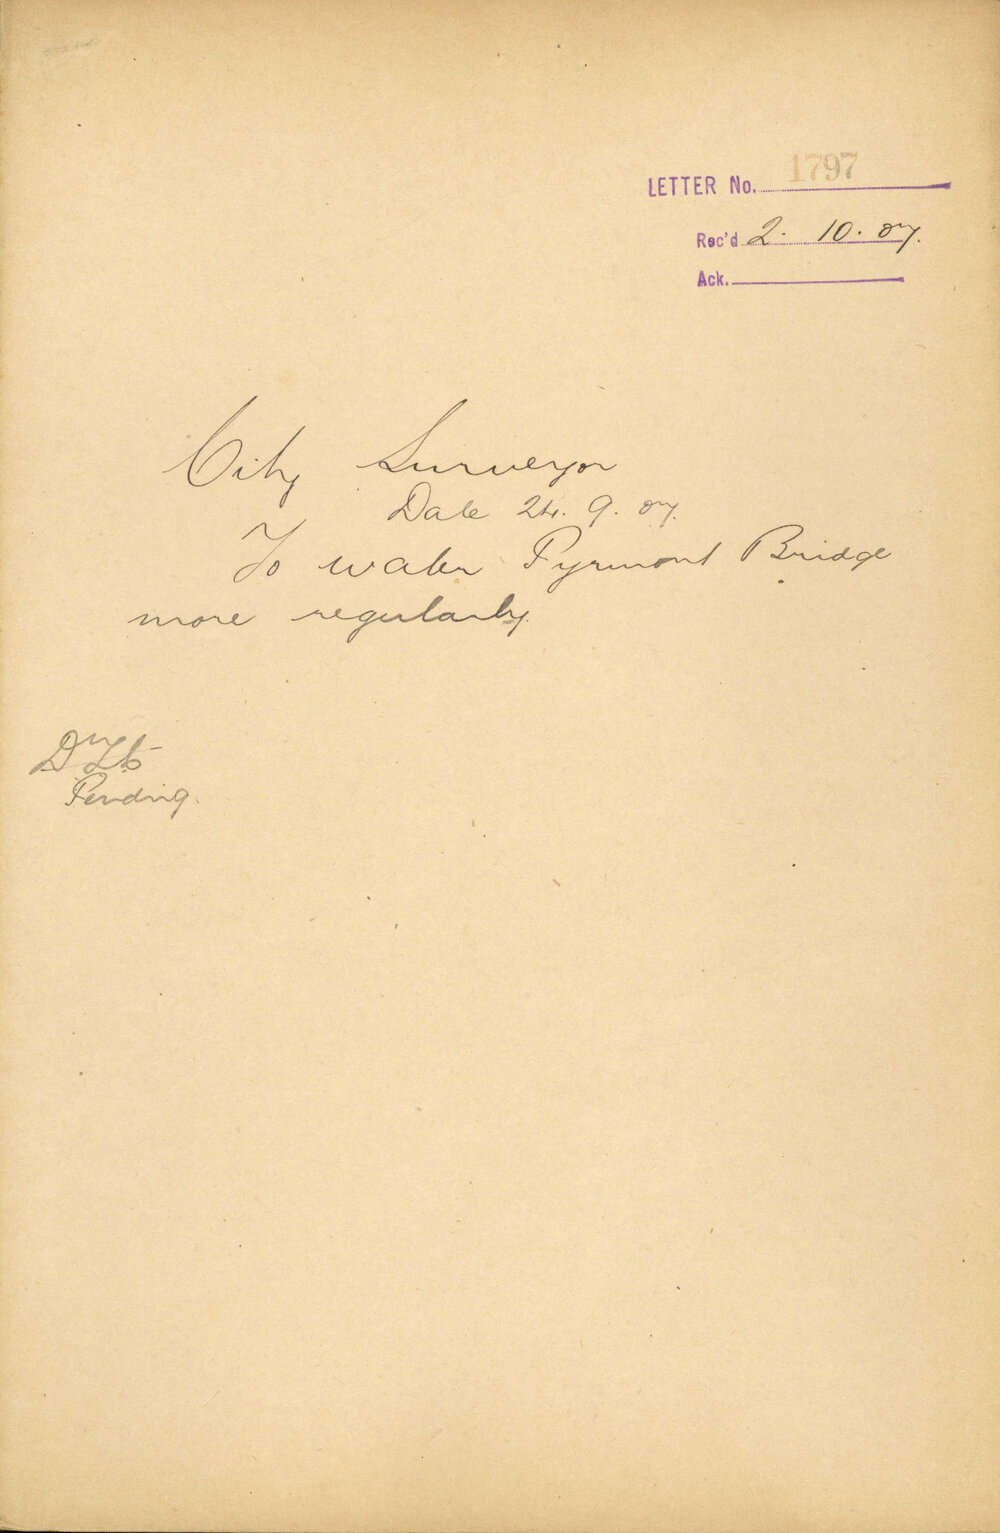 LETTER No. 1797
Rec'd 2. 10. 07.
Ack.
City Surveyor
Date 24. 9. 07.
To water Pyrmont Bridge
more regularly.
Pending.